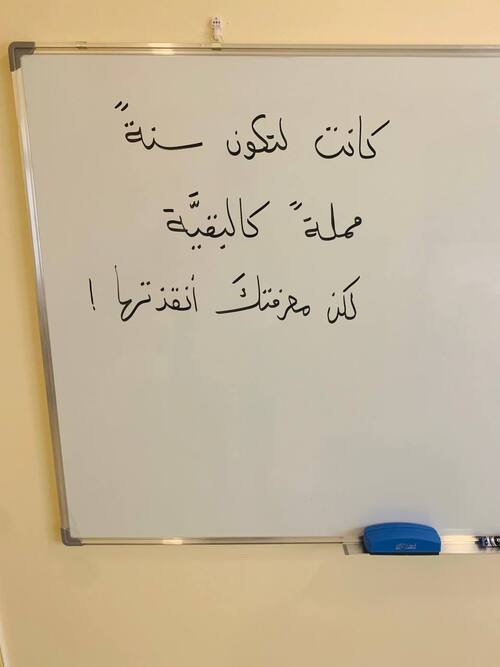 كانت لتكون سنةً
مملةً كالبقيَّة
لكن معرفتكَ أنقذتها !